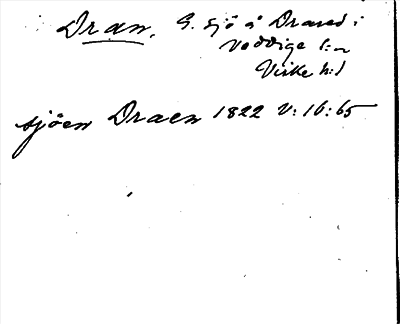 Dran, G. sjö å Drared i
Veddige s:n
Viske h:d
sjöen Draen 1822 V: 16: 65